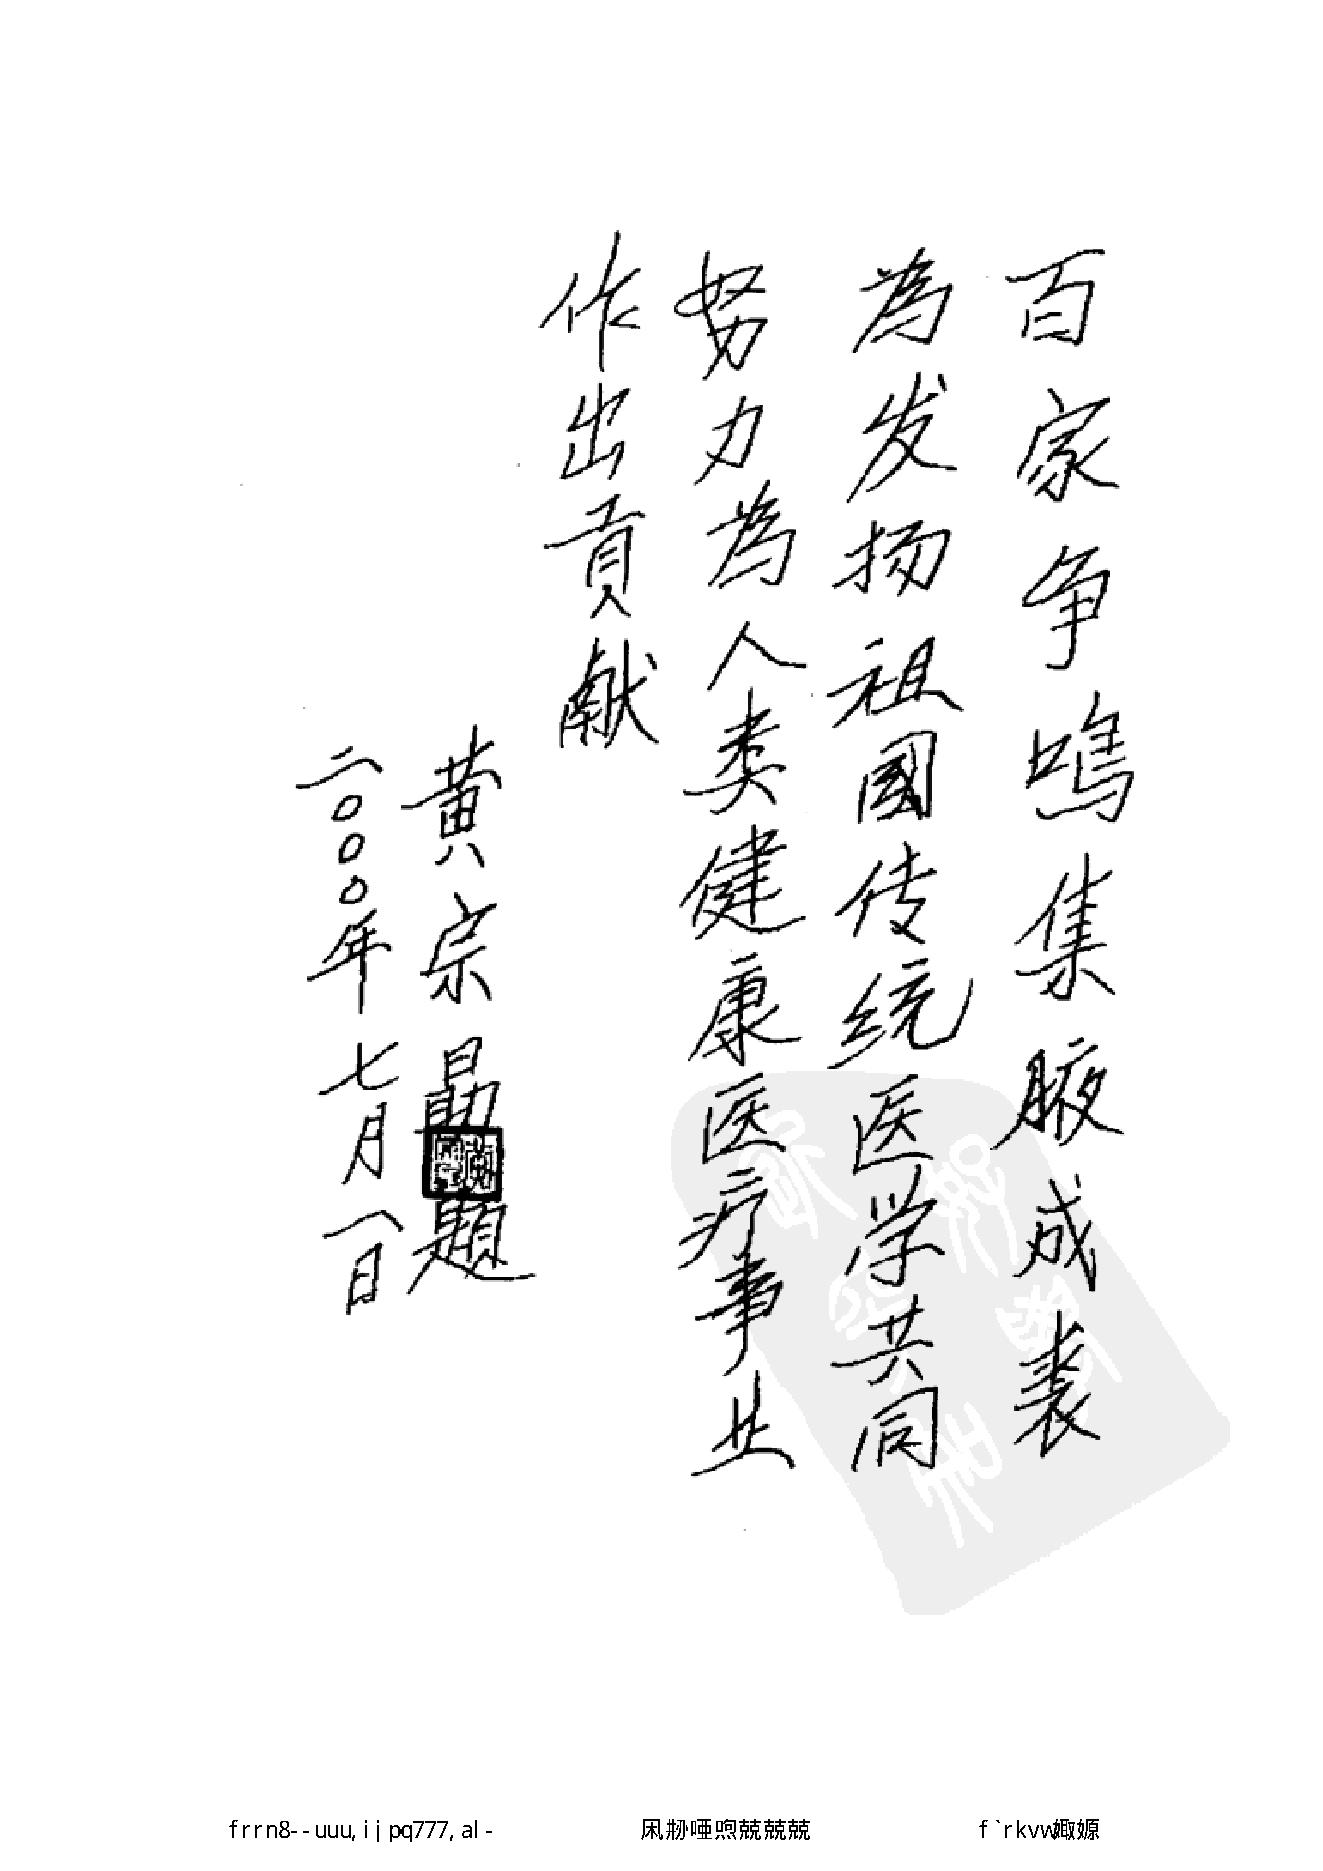 百家争鳴集腋成裘
為发扬祖國传统医学共同
努力為人类健康医疗事业
作出貢献
黄宗勗題
二〇〇〇年七月八日
frrn8--uuu,ijpq777,al-
f`rkvw娵嫄